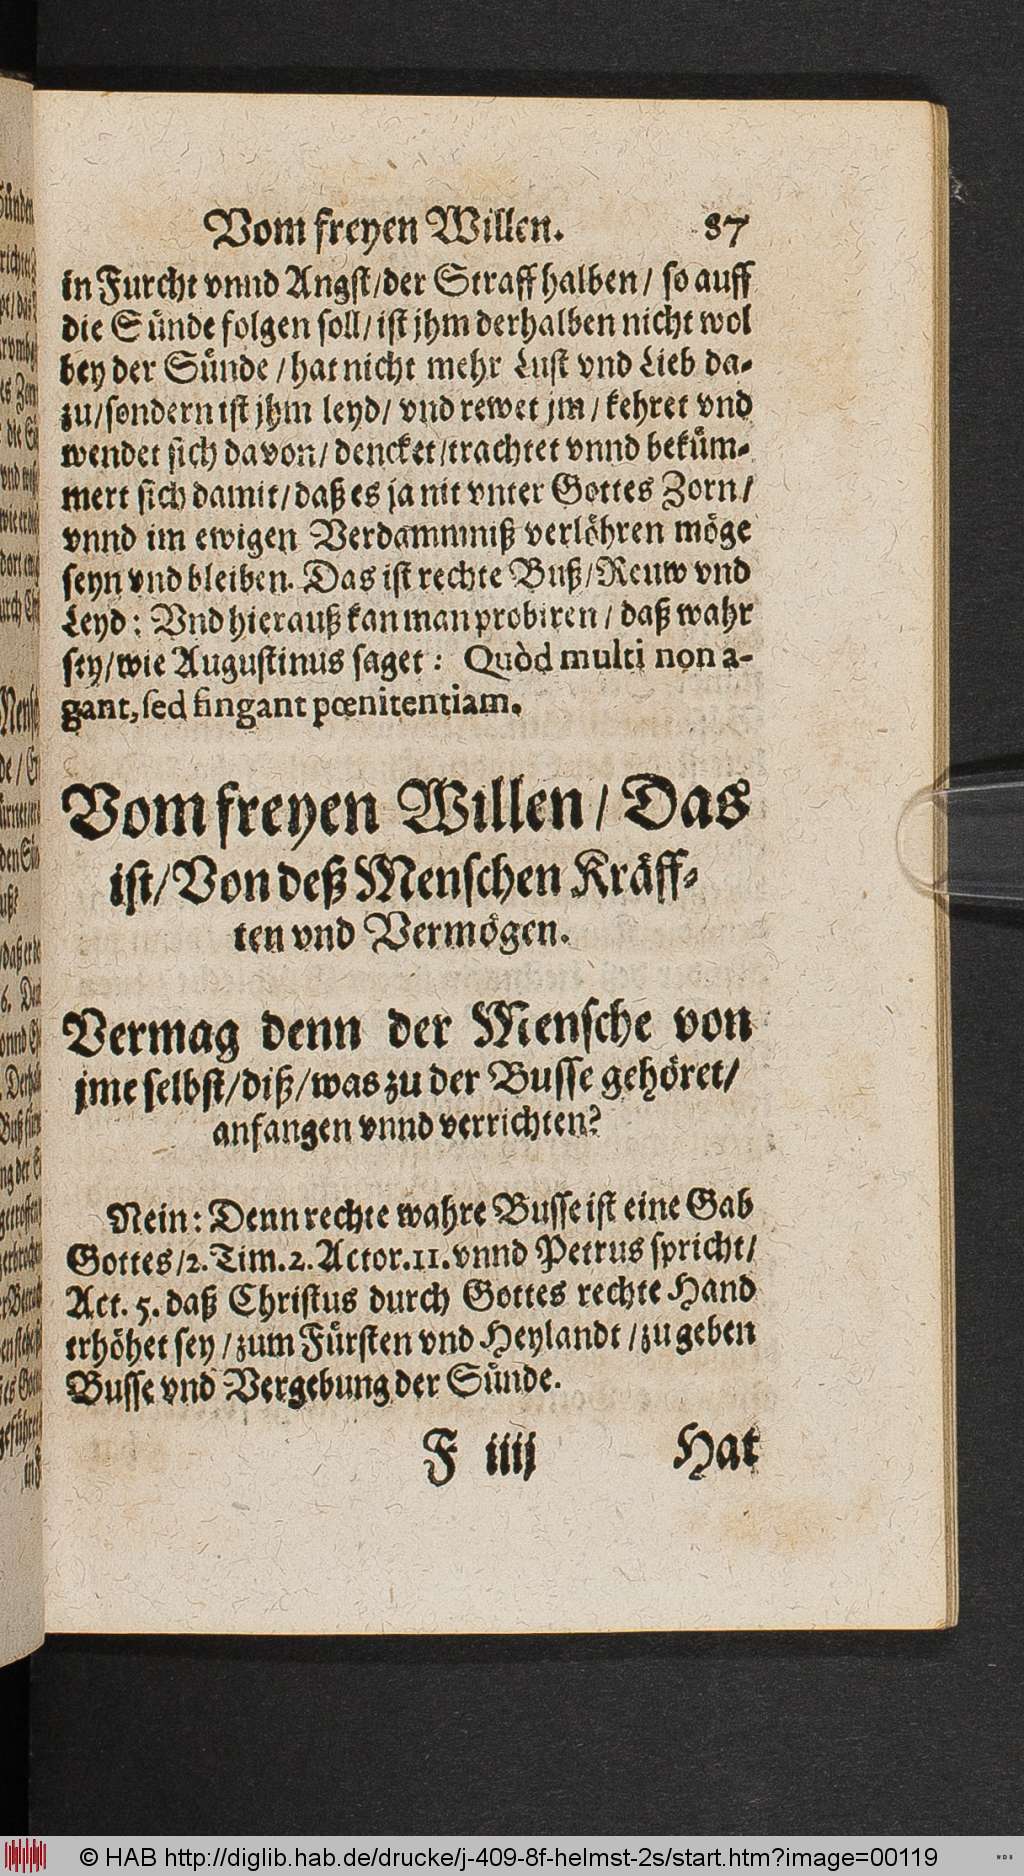 Vom freyen Willen. 87
in Furcht vnnd Angst/der Straff halben/ so auff
die Sünde folgen soll/ist jhm derhalben nicht wol
bey der Sünde/hat nicht mehr Lust vnd Lieb da-
zu/sondern ist jhm leyd/ vnd rewet jm/ kehret vnd
wendet sich davon/ dencket/trachtet vnnd beküm-
mert sich damit/daß es ja nit vnter Gottes Zorn/
vnnd im ewigen Verdammniß verlöhren möge
seyn vnd bleiben. Das ist rechte Buß/Reuw vnd
Leyd: Vnd hierauß kan man probiren/ daß wahr
sey/wie Augustinus saget: Quòd multi non a-
gant, sed fingant pœnitentiam.
Vom freyen Willen/ Das
ist/Von deß Menschen Kräff-
ten vnd Vermögen.
Vermag denn der Mensche von
jme selbst/diß/was zu der Busse gehöret/
anfangen vnnd verrichten?
Nein: Denn rechte wahre Busse ist eine Gab
Gottes/2. Tim. 2. Actor. 11. vnnd Petrus spricht/
Act. 5. daß Christus durch Gottes rechte Hand
erhöhet sey/zum Fürsten vnd Heylandt/zu geben
Busse vnd Vergebung der Sünde.
F iiij Hat
© HAB http://diglib.hab.de/drucke/j-409-8f-helmst-2s/start.htm?image=00119